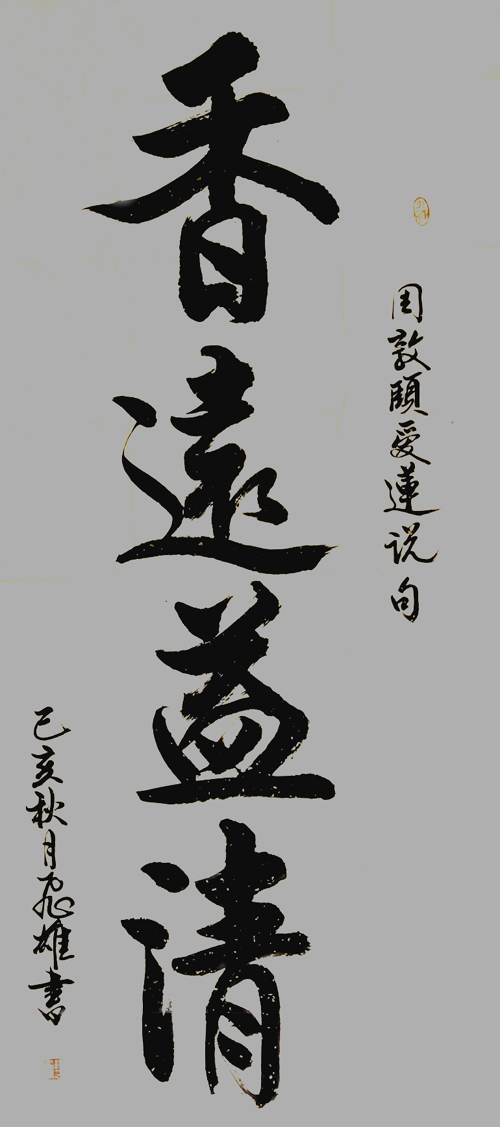 周敦頤愛蓮说句
香遠益清
己亥秋月飛雄書